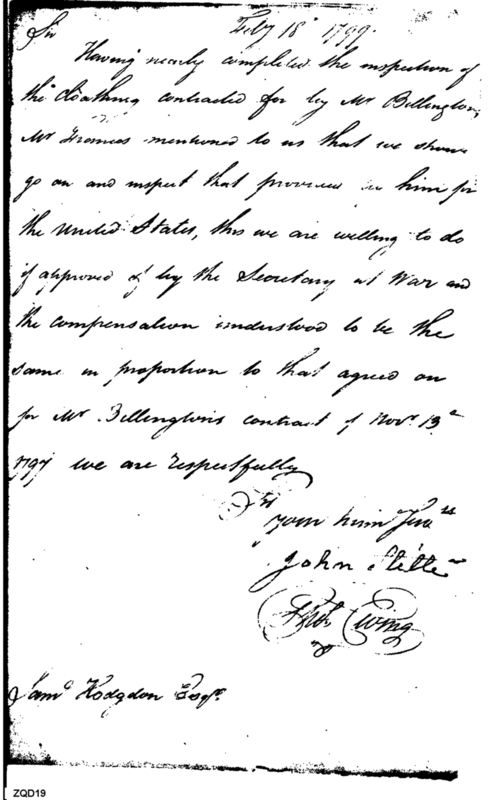 Feby 18 1799
Sir
Having nearly completed the inspection of
the Cloathing contracted for by Mr Billington,
Mr Francis mentioned to us that we should
go on and inspect that provided by him for
the United States, this we are willing to do
if approved of by the Secretary at War and
the compensation understood to be the
same in proportion to that agreed on
for Mr Billingtons contract of Novr 13
1797 we are respectfully
Sir
Your Humb Serts
John
Ewing
Saml Hodgdon Esqr.
ZQD19